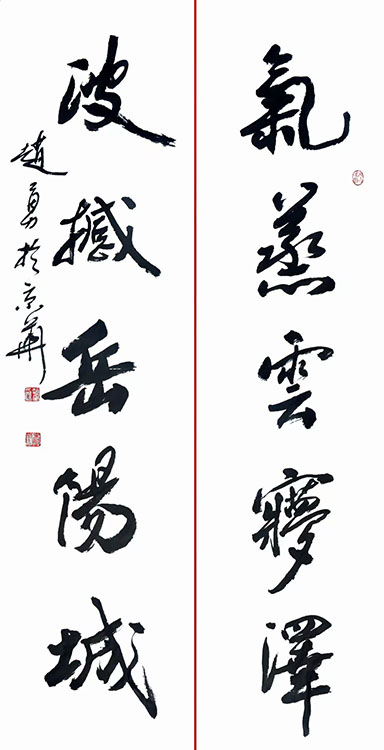 氣蒸雲夢澤
波撼岳陽城
趙勇於京華